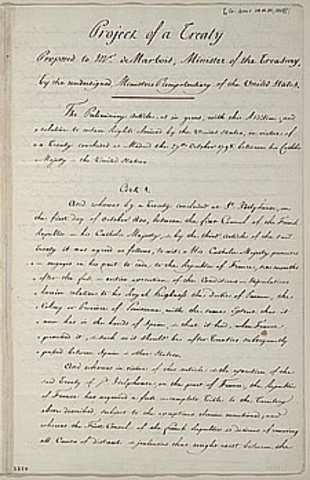 Project of a Treaty
Proposed to Mr. de Marbois, Minister of the Treasury
by the undersigned, Ministers Plenipotentiary of the United States.
The Preliminary Articles, as in gross, with the Addition, and
a relation to certain Rights claimed by the United States, in virtue of
a Treaty concluded at Madrid the 27th October 1795, between his Catholic
Majesty & the United States
Art. 1.
And whereas by a Treaty concluded at St. Ildephonso, on
the first day of October 1800, between the first Consul of the French
Republic & his Catholic Majesty, & by the third article of the said
Treaty it was agreed as follows, to wit: His Catholic Majesty promises
& engages on his part to cede to the Republic of France, six months
after the full & entire execution of the Conditions & stipulations
herein relative to his Royal Highness the Duke of Parma, the
Colony or Province of Louisiana with the same Extent that it
now has in the hands of Spain, & that it had when France
possessed it, & such as it should be after Treaties subsequently
passed between Spain & other States.
And whereas in virtue of this article & the execution of the
said Treaty of St. Ildephonso, on the part of France, the Republic
of France has acquired a full & complete Title to the Territory
above described subject to the exceptions therein mentioned; and
whereas the First Consul of the French Republic is desirous of removing
all Causes of distrust & jealousies that might exist between the